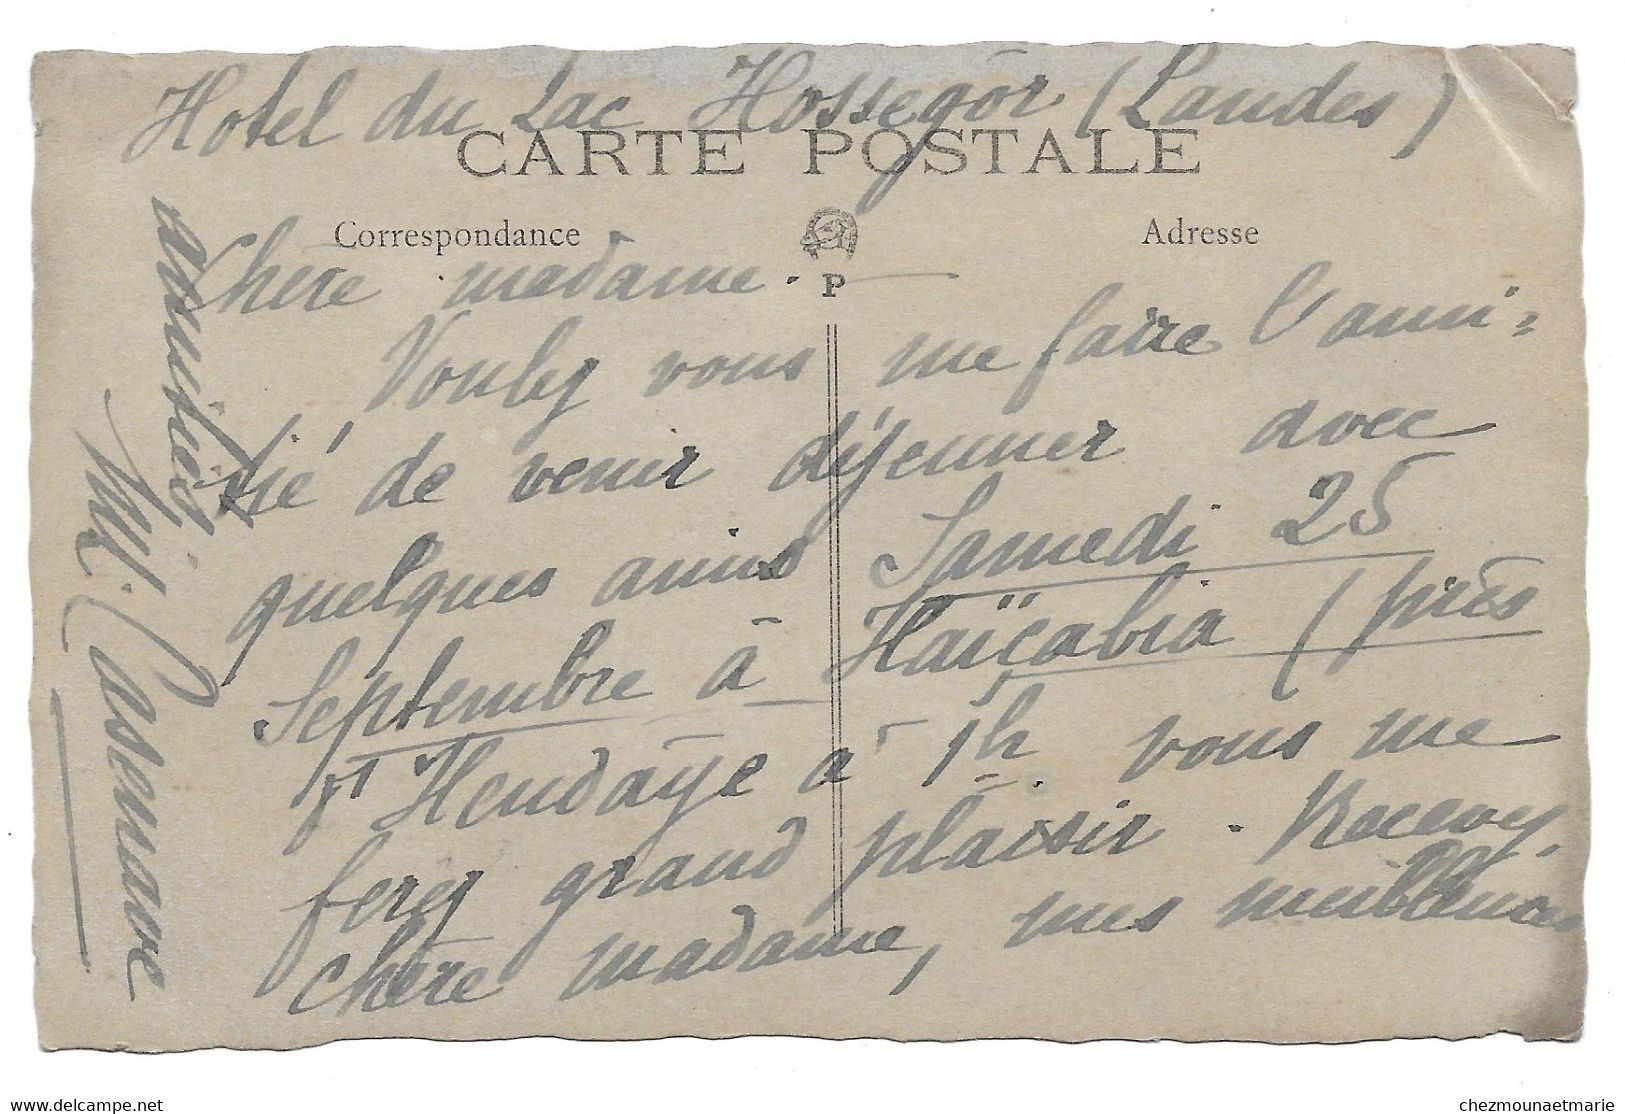 Hotel du Lac Hossegor (Landes)
CARTE POSTALE
Correspondance
Adresse
P
Chère madame. —
Voulez vous me faire l'ami-
tié de venir déjeuner avec
quelques amis Samedi 25
Septembre à Haïçabia (près
d'Hendaÿe à 1h vous me
ferez grand plaisir. Recevez,
chère madame, mes meilleures
amitiés.
www.delcampe.net
chezmounaetmarie